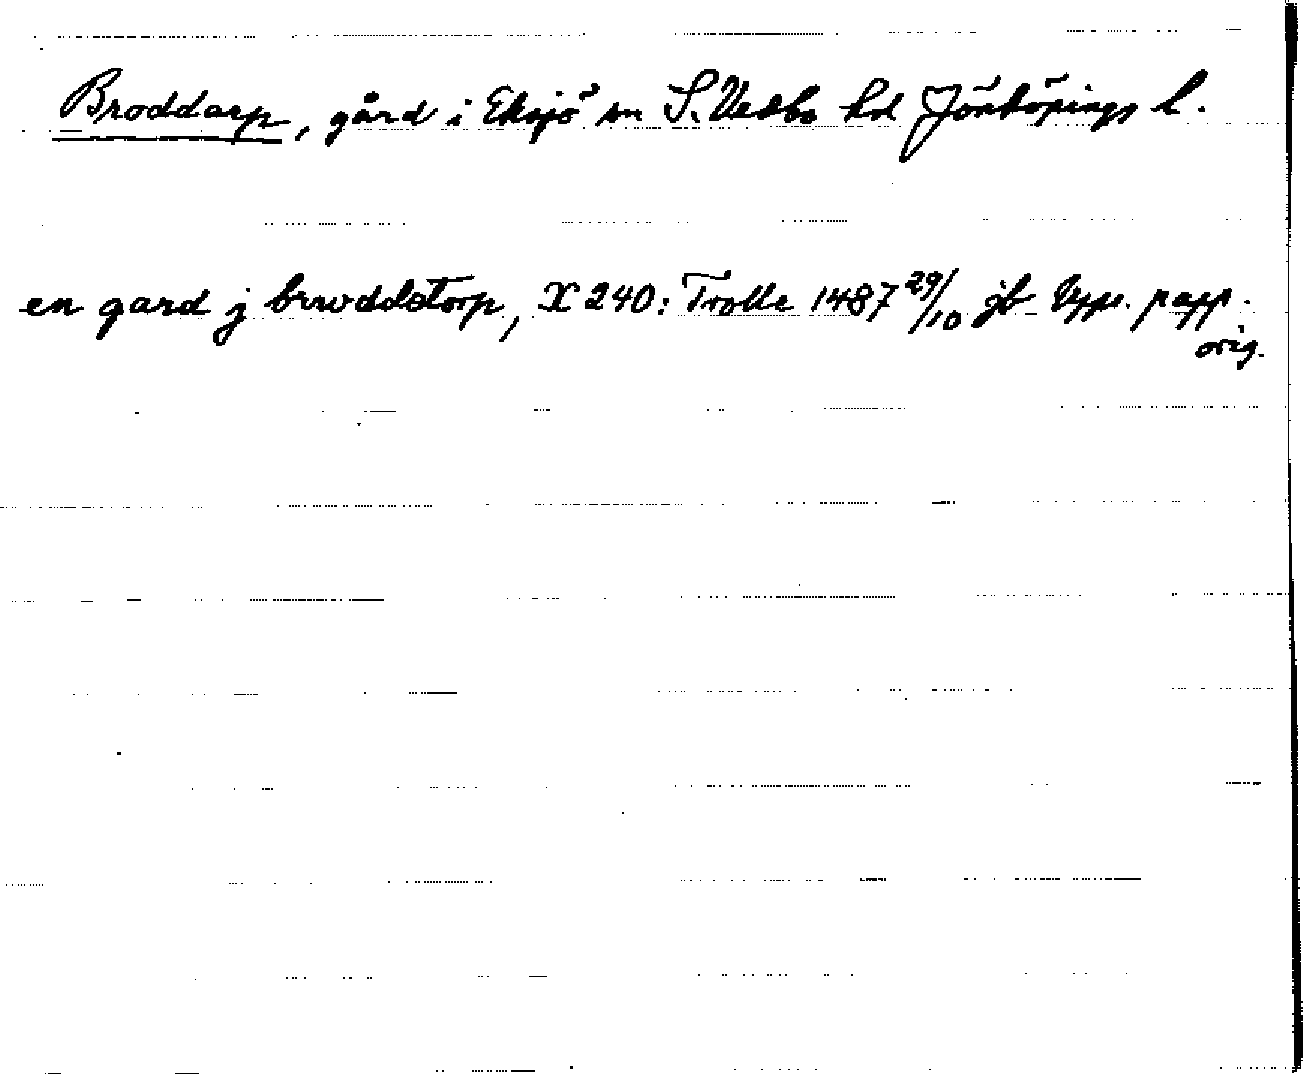 Broddarp, gård i Eksjö sn S. Vedbo hd Jönköpings l.
en gard j brwddetorp, X 240: Trolle 1487 29/10 jb Upps. papp.
orig.